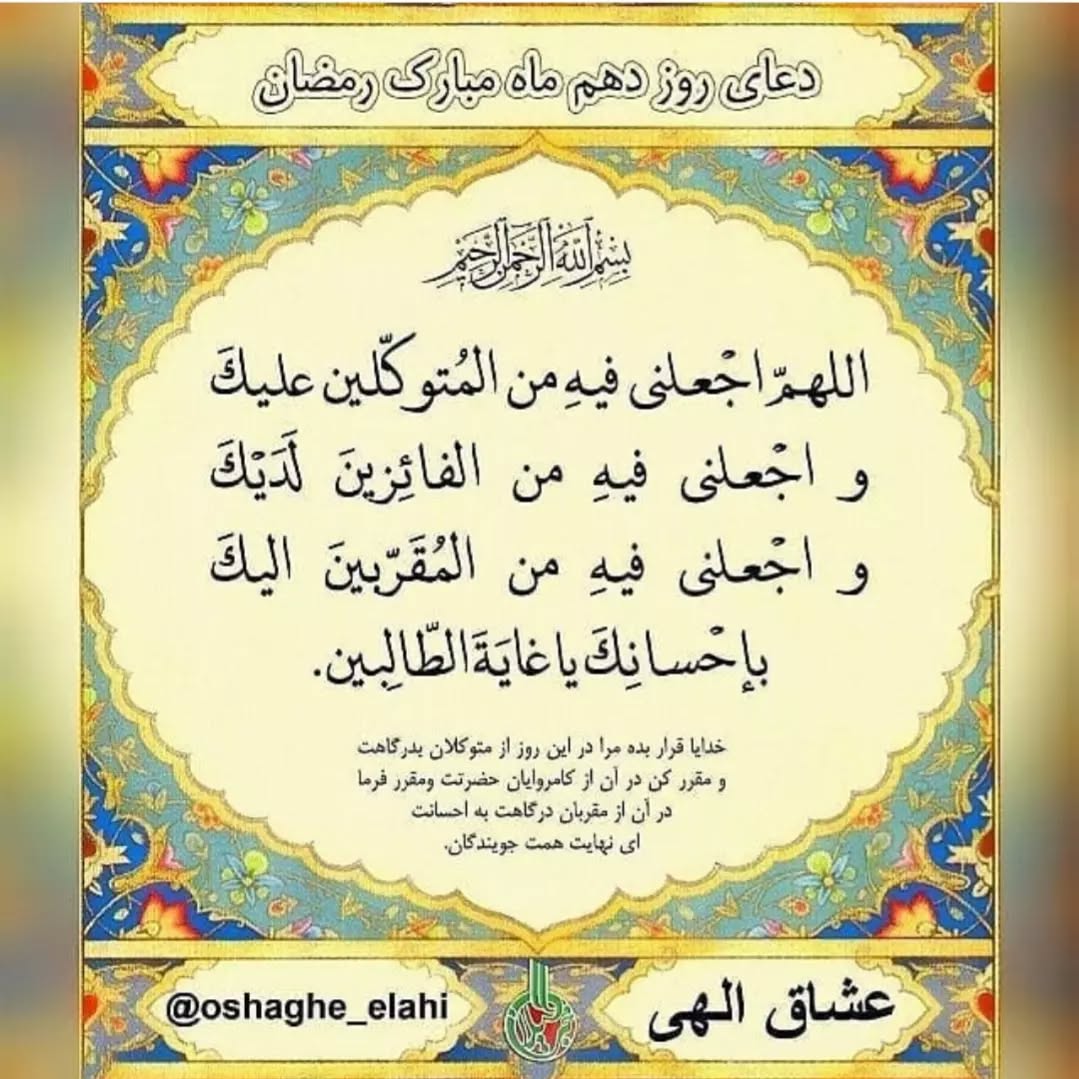 دعای روز دهم ماه مبارک رمضان
بِسْمِ اللَّهِ الرَّحْمَنِ الرَّحِيمِ
اللهمّ اجْعلنی فیهِ من المُتوکّلین علیكَ
و اجْعلنی فیهِ من الفائِزینَ لَدَیْكَ
و اجْعلنی فیهِ من المُقَرّبینَ الیكَ
بإحْسانِكَ یا غایَةَ الطّالِبین.
خدایا قرار بده مرا در این روز از متوکلان بدرگاهت
و مقرر کن در آن از کامروایان حضرتت ومقرر فرما
در آن از مقربان درگاهت به احسانت
ای نهایت همت جویندگان.
عشاق الهی
@oshaghe_elahi